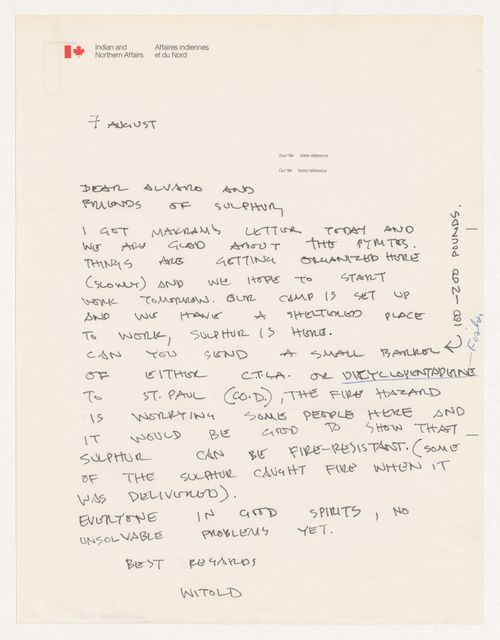 Indian and Northern Affairs
Affaires indiennes et du Nord
7 AUGUST
Your file Votre référence
Our file Notre référence
DEAR ALVARO AND
FRIENDS OF SULPHUR,
I GOT MAKRAM'S LETTER TODAY AND
WE ARE GLAD ABOUT THE PYRITES.
THINGS ARE GETTING ORGANIZED HERE
(SLOWLY) AND WE HOPE TO START
WORK TOMORROW. OUR CAMP IS SET UP
AND WE HAVE A SHELTERED PLACE
TO WORK, SULPHUR IS HERE.
CAN YOU SEND A SMALL BARREL
OF EITHER C.T.L.A. OR DICYCLOPENTADIENE
TO ST. PAUL (C.O.D.), THE FIRE HAZARD
IS WORRYING SOME PEOPLE HERE AND
IT WOULD BE GOOD TO SHOW THAT
SULPHUR CAN BE FIRE-RESISTANT. (SOME
OF THE SULPHUR CAUGHT FIRE WHEN IT
WAS DELIVERED).
EVERYONE IN GOOD SPIRITS, NO
UNSOLVABLE PROBLEMS YET.
BEST REGARDS
WITOLD
POUNDS.